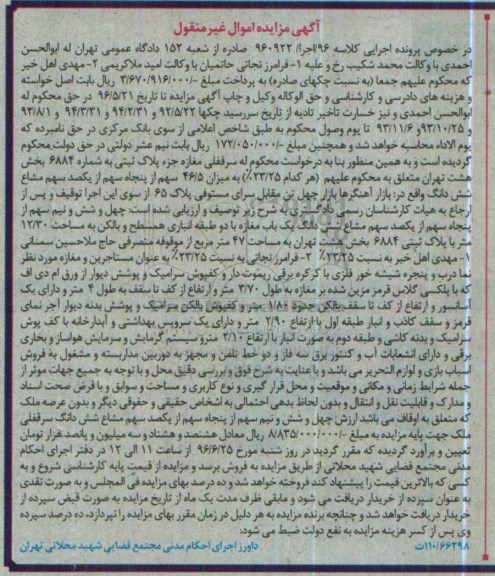 آگهی مزایده اموال غیر منقول
در خصوص پرونده اجرایی کلاسه ۹۶/اجرا/ ۹۶۰۹۲۲ صادره از شعبه ۱۵۲ دادگاه عمومی تهران له ابوالحسن
احمدی با وکالت محمد شکیب رخ و علیه ۱- فرامرز نجاتی حاتمیان با وکالت امید ملاکریمی ۲- مهدی اهل خیر
که محکوم علیهم جمعا (به نسبت چکهای صادره) به پرداخت مبلغ -/۳/۶۷۰/۹۱۶/۰۰۰ ریال بابت اصل خواسته
و هزینه های دادرسی و کارشناسی و حق الوکاله وکیل و چاپ آگهی مزایده تا تاریخ ۹۶/۵/۲۱ در حق محکوم له
ابوالحسن احمدی و نیز خسارت تاخیر تادیه از تاریخ سررسید چکها ۹۲/۵/۲۲ و ۹۴/۲/۳۱ و ۹۴/۳/۳۱ و ۹۳/۸/۱
و ۹۳/۱۰/۲۵و ۹۳/۱۱/۶ تا یوم وصول محکوم به طبق شاخص اعلامی از سوی بانک مرکزی در حق نامبرده که
یوم الاداء محاسبه خواهد شد و همچنین مبلغ -/۱۷۲/۰۵۰/۰۰۰ ریال بابت نیم عشر دولتی در حق دولت،محکوم
گردیده است و به همین منظور بنا به درخواست محکوم له سرقفلی مغازه جزء پلاک ثبتی به شماره ۶۸۸۴ بخش
هشت تهران متعلق به محکوم علیهم (هر کدام ۲۳/۲۵٪) به میزان ۴۶/۵ سهم از پنجاه سهم از یکصد سهم مشاع
شش دانگ واقع در: بازار آهنگرها بازار چهل تن مقابل سرای مستوفی پلاک ۶۵ از سوی این اجرا توقیف و پس از
ارجاع به هیات کارشناسان رسمی دادگستری به شرح زیر توصیف و ارزیابی شده است: چهل و شش و نیم سهم از
پنجاه سهم از یکصد سهم مشاع شش دانگ یک باب مغازه با دو طبقه انباری همسطح و بالکن به مساحت ۱۲/۳۰
متر با پلاک ثبتی ۶۸۸۴ بخش هشت تهران به مساحت ۴۷ متر مربع از موقوفه متصرفی حاج ملاحسین سمنانی
۱- مهدی اهل خیر به نسبت ۲۳/۲۵٪ ۲- فرامرز نجاتی به نسبت ۲۳/۲۵٪ به عنوان مستاجرین و مغازه مورد نظر
نما درب و پنجره شیشه خور فلزی با کرکره برقی ریموت دار و کفپوش سرامیک و پوشش دیوار از ورق ام دی اف
که با پلکسی گلاس قرمز مزین شده بر مغازه به طول ۳/۷۰ متر و ارتفاع از کف تا سقف به طول ۴ متر و دارای یک
آسانسور و ارتفاع از کف تا سقف بالکن حدود ۱/۸۰ متر و کفپوش بالکن سرامیک و پوشش بدنه دیوار آجر نمای
قرمز و سقف کاذب و انبار طبقه اول با ارتفاع ۲/۹۰ متر و دارای یک سرویس بهداشتی و آبدارخانه با کف پوش
سرامیک و بدنه کاشی و طبقه دوم به صورت انبار با ارتفاع ۲/۱۰ متر و سیستم گرمایش و سرمایش هواساز و بخاری
برقی و دارای انشعابات آب و کنتور برق سه فاز و دو خط تلفن و مجهز به دوربین مداربسته و مشغول به فروش
اسباب بازی و لوازم التحریر می باشد و با عنایت به شرح فوق و بررسی دقیق محل و با توجه به جمیع جهات موثر از
جمله شرایط زمانی و مکانی و موقعیت و محل قرار گیری و نوع کاربری و مساحت و سوابق و با فرض صحت اسناد
و مدارک و قابلیت نقل و انتقال و بدون لحاظ بدهی احتمالی به اشخاص حقیقی و حقوقی دیگر و بدون عرصه ملک
که متعلق به اوقاف می باشد ارزش چهل و شش و نیم سهم از پنجاه سهم از یکصد سهم مشاع شش دانگ سرقفلی
ملک جهت پایه مزایده به مبلغ -/۸/۸۳۵/۰۰۰/۰۰۰ ریال معادل هشتصد و هشتاد و سه میلیون و پانصد هزار تومان
تعیین و برآورد گردیده که مقرر گردید در روز شنبه مورخ ۹۶/۶/۲۵ از ساعت ۱۱ الی ۱۲ در دفتر اجرای احکام
مدنی مجتمع قضایی شهید محلاتی از طریق مزایده به فروش برسد و مزایده از قیمت پایه کارشناسی شروع و به
کسی که بالاترین قیمت را پیشنهاد کند فروخته خواهد شد و ده درصد بهای مزایده فی المجلس و به صورت نقدی
به عنوان سپرده از خریدار دریافت می شود و مابقی ظرف مدت یک ماه از تاریخ مزایده به صورت قبض سپرده از
خریدار دریافت خواهد شد و چنانچه برنده مزایده به هر دلیل در زمان مقرر بهای مزایده را نپردازد، ده درصد سپرده
وی پس از کسر هزینه مزایده به نفع دولت ضبط می شود.
۱۱۰/۶۶۲۹۸ت داورز اجرای احکام مدنی مجتمع قضایی شهید محلاتی تهران